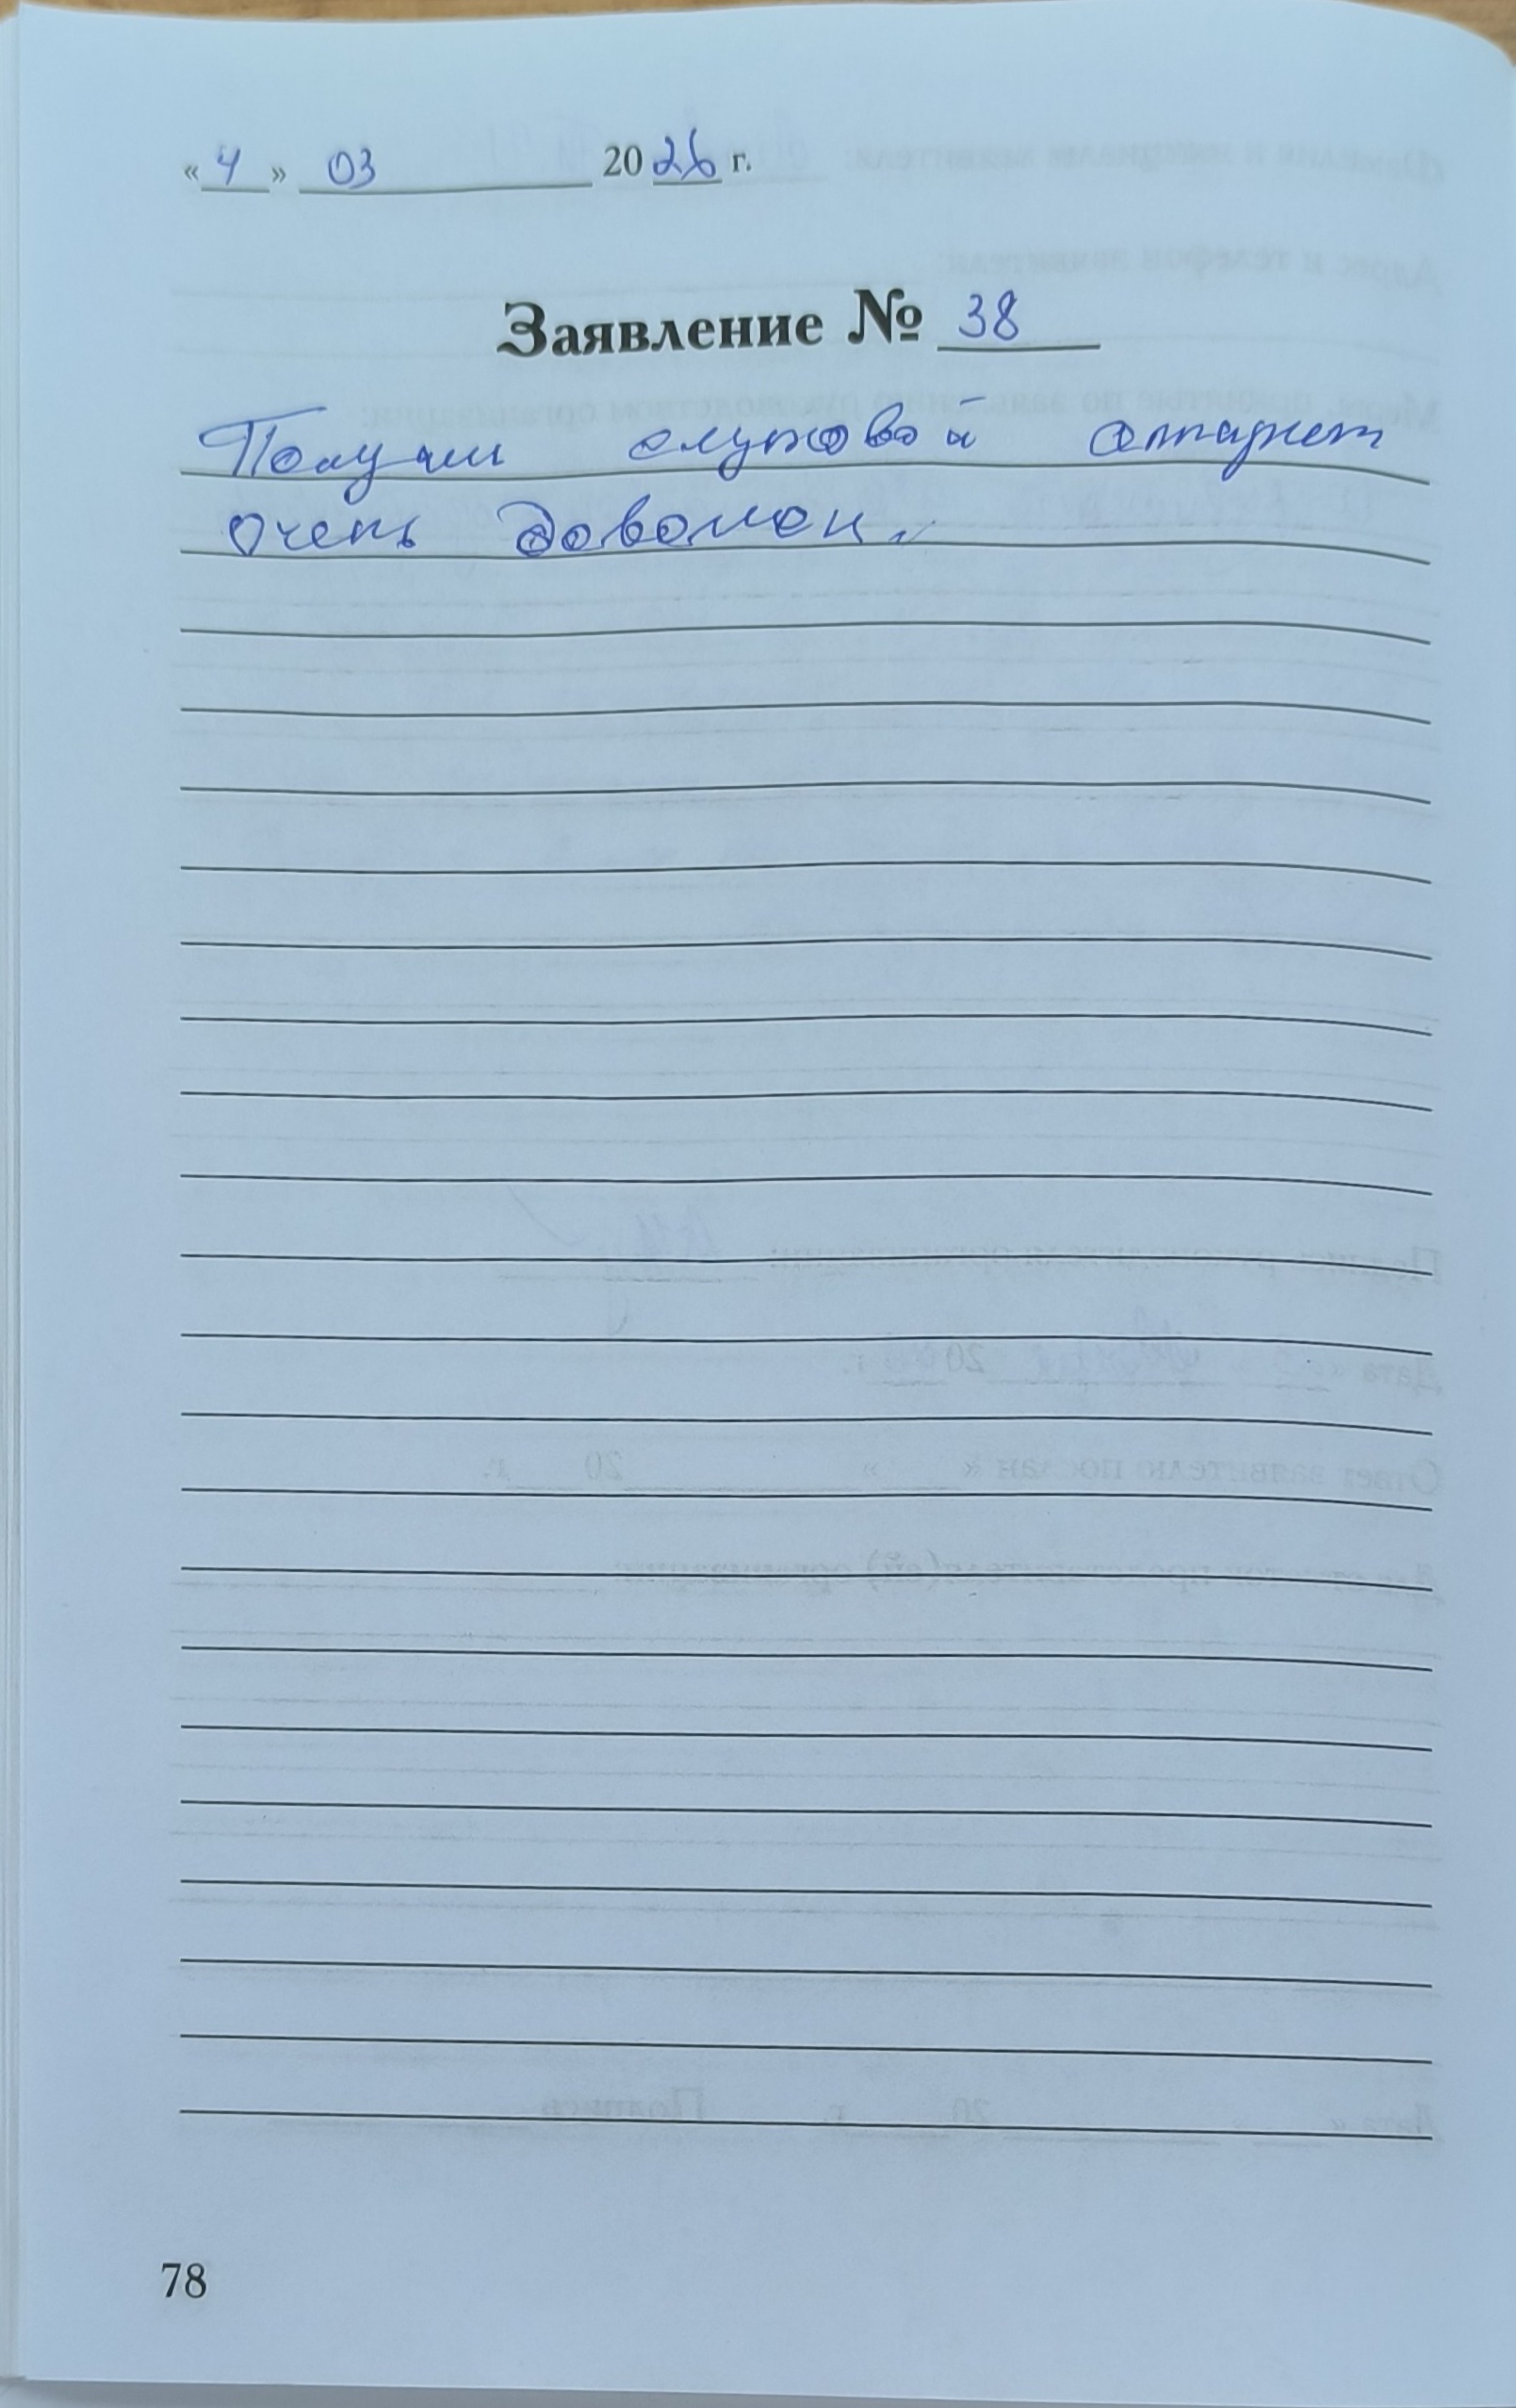 «4» 03 2026 г.
Заявление № 38
Получил слуховой аппарат
очень доволен.
78